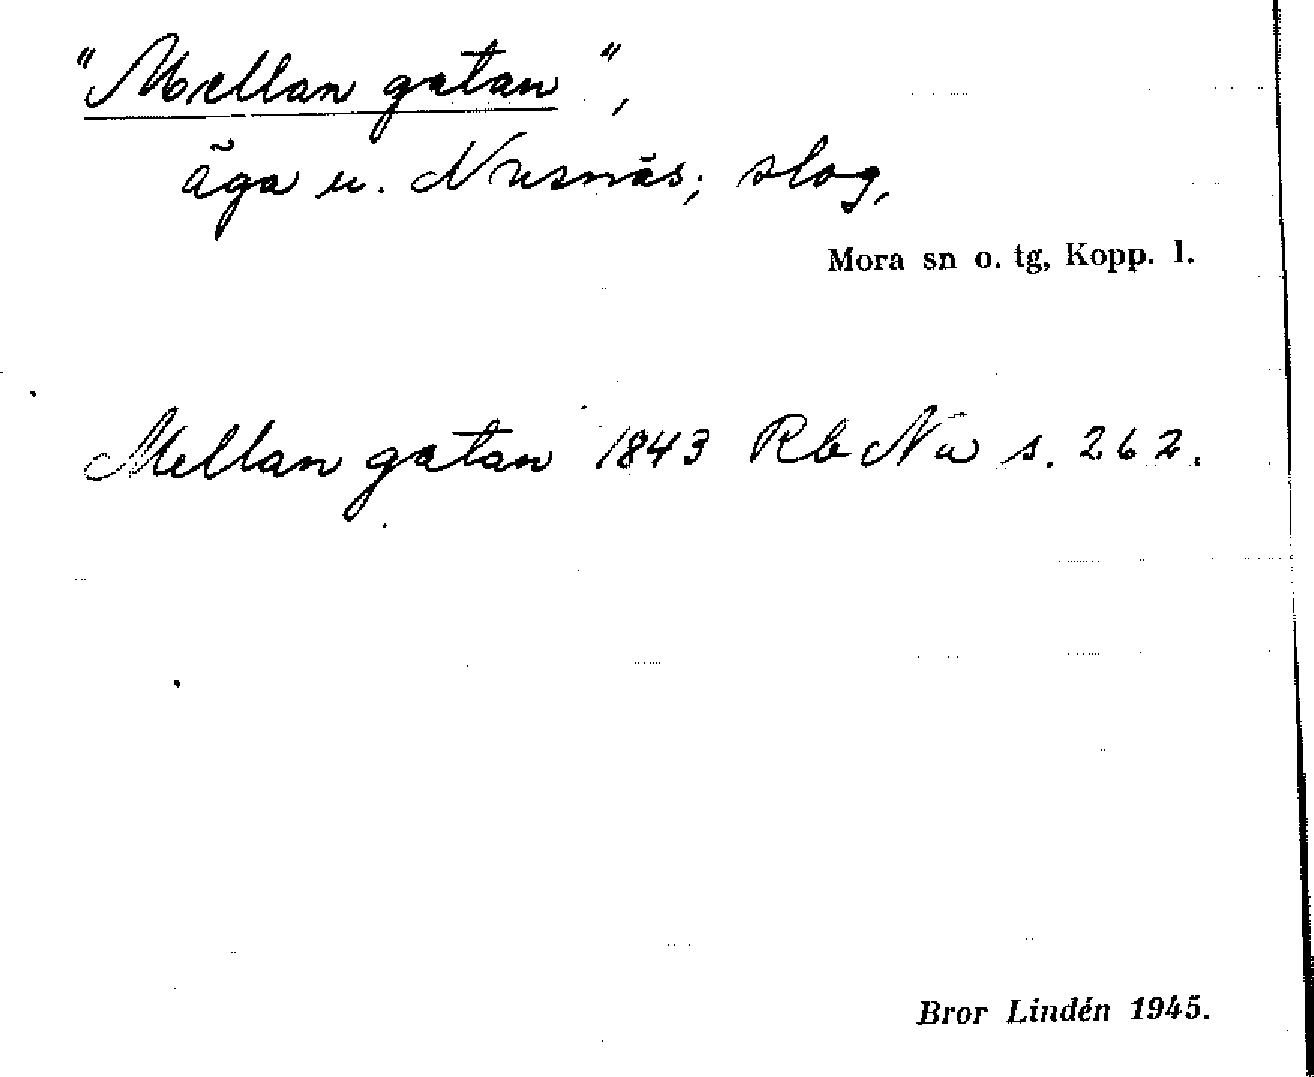 "Mellan gatan",
äga u. Nusnäs; slog,
Mora sn o. tg, Kopp. l.
Mellan gatan 1843 Rb Nu s. 262.
Bror Lindén 1945.